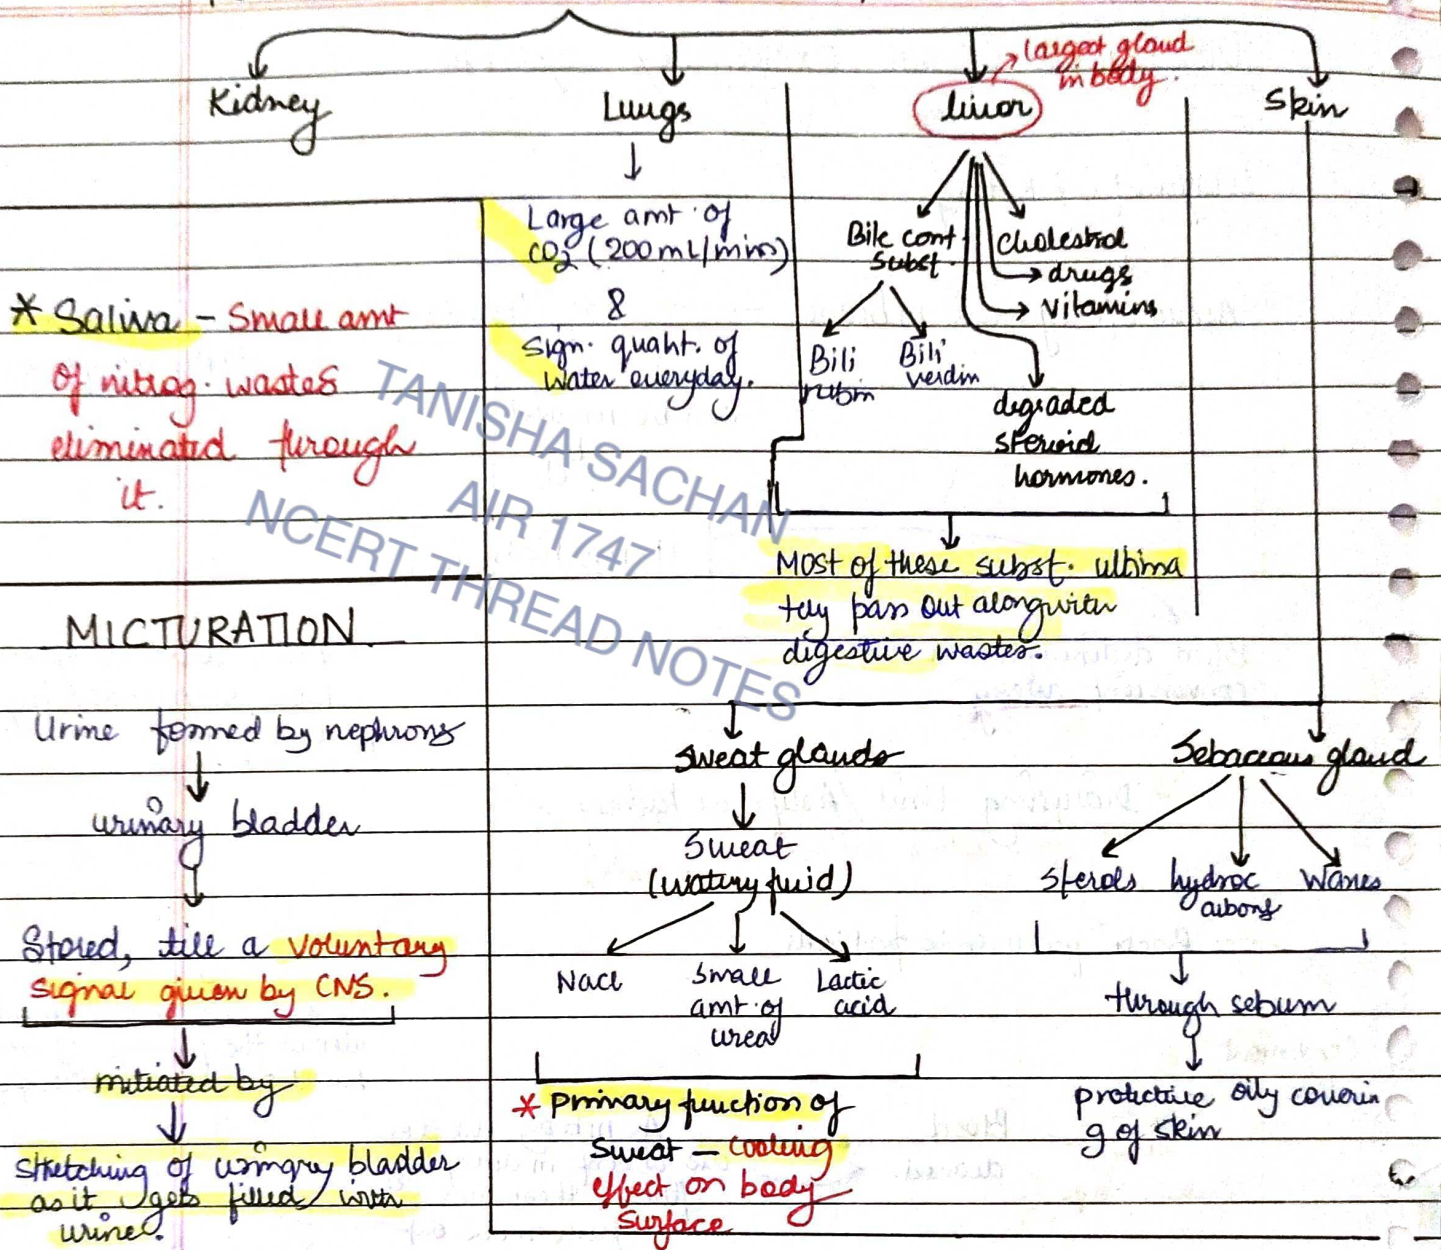 Kidney
Lungs
Liver
largest gland
in body.
Skin
Large amt. of
CO2 (200mL/mins)
&
Sign. quant. of
water everyday.
Bile cont.
subst.
Bili
rubin
Bili
verdin
Cholestrol
drugs
vitamins
degraded
steroid
hormones.
Most of these subst. ultima
tely pass out alongwith
digestive wastes.
* Saliva - Small amt
of nitrog. wastes
eliminated through
it.
TANISHA SACHAN
AIR 1747
NCERT THREAD NOTES
MICTURATION
Urine formed by nephrons
urinary bladder
Stored, till a voluntary
signal given by CNS.
initiated by
stretching of urinary bladder
as it gets filled with
urine.
Sweat glands
Sweat
(watery fluid)
NaCl
Small
amt. of
urea
Lactic
acid
* Primary function of
sweat - cooling
effect on body
surface
Sebaceous gland
Sterols
hydroc
arbons
Waxes
through sebum
protective oily coverin
g of skin